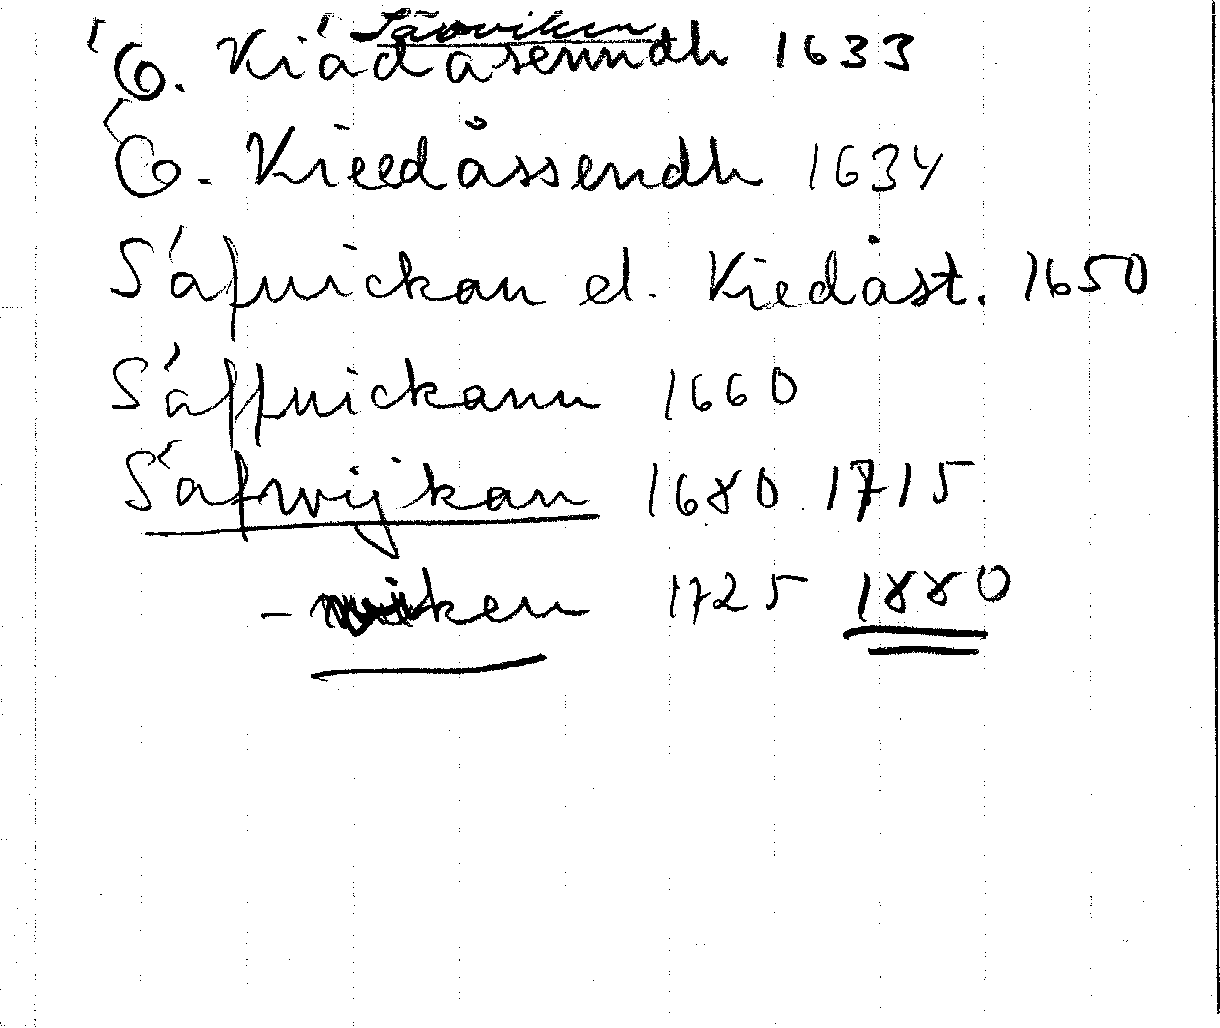 Sävviken
Ó. Kiádåsenndh 1633
Ó. Kieedåssendh 1634
Sáfuickan el. Kiedåst. 1650
Sáffuickann 1660
Sáfwijkan 1680 1715
- wiken 1725 1880